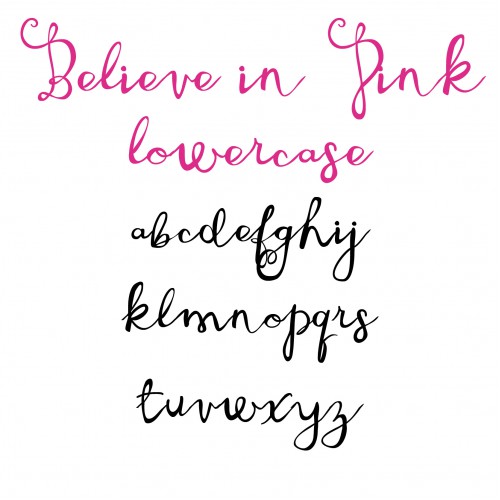 Believe in Pink
lowercase
abcdefghij
klmnopqrs
tuvwxyz